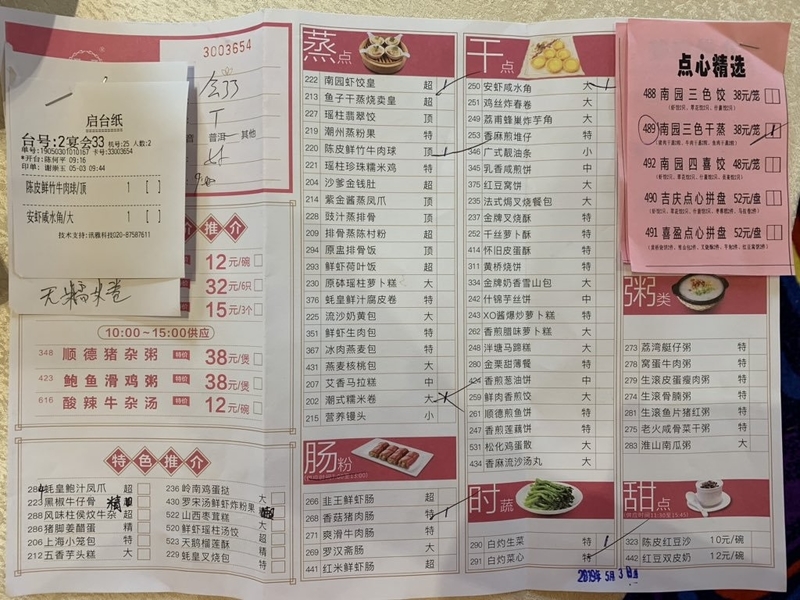 3003654
会33
启台纸
台号:2宴会33 机号:25 人数:2
单号:19050301010167 卡号:33003654
*开台:陈何平 09:16
印单:谢崇玉 05-03 09:44
陈皮鲜竹牛肉球/顶 1 [ ]
安虾咸水角/大 1 [ ]
技术支持:讯雅科技020-87587611
无糯米卷
普洱 其他
推介
12元/碗
32元/6只
15元/3个
10:00~15:00供应
348 顺德猪杂粥 特价 38元/煲
423 鲍鱼滑鸡粥 特价 38元/煲
616 酸辣牛杂汤 特价 12元/碗
特色推介
284 蚝皇鲍汁凤爪 超
223 黑椒牛仔骨
288 风味柱侯炆牛杂 超
286 猪脚姜醋蛋 精
206 上海小笼包 特
212 五香芋头糕 大
236 岭南鸡蛋挞 大
430 罗宋汤鲜虾炸粉果
522 山西枣茸糕 大
520 鲜虾瑶柱汤饺 超
523 天鹅榴莲酥 精
229 蚝皇叉烧包 特
蒸点
222 南园虾饺皇 超
213 鱼子干蒸烧卖皇 超
227 瑶柱翡翠饺 顶
219 潮州蒸粉果 特
220 陈皮鲜竹牛肉球 顶
221 瑶柱珍珠糯米鸡 特
204 沙爹金钱肚 超
214 紫金酱蒸凤爪 顶
228 豉汁蒸排骨 顶
209 排骨蒸陈村粉 超
294 原盅排骨饭 顶
293 鲜虾荷叶饭 超
230 原砵瑶柱萝卜糕 大
376 蚝皇鲜汁腐皮卷 特
225 流沙奶黄包 大
351 鲜虾生肉包 特
367 冰肉燕麦包 特
431 燕麦核桃包 大
207 艾香马拉糕 中
202 潮式糯米卷 大
215 营养馒头 小
肠粉
266 韭王鲜虾肠 超
268 香菇猪肉肠 特
271 爽滑牛肉肠 特
269 罗汉斋肠 大
441 红米鲜虾肠 超
干点
250 安虾咸水角 大
251 鸡丝炸春卷 大
249 荔甫蜂巢炸芋角 大
253 香麻煎堆仔 特
346 广式靓油条 小
345 乳香咸煎饼 中
375 红豆窝饼 大
235 法式焗叉烧餐包 大
237 金牌叉烧酥 特
252 千丝萝卜酥 特
414 怀旧皮蛋酥 特
311 黄桥烧饼 特
334 金牌奶香雪山包 大
242 什锦芋丝饼 中
243 XO酱爆炒萝卜糕 特
262 香煎腊味萝卜糕 大
248 泮塘马蹄糕 大
280 金栗甜薄餐 特
424 香煎葱油饼 中
259 鲜肉香煎饺 大
261 顺德煎鱼饼 特
247 香煎莲藕饼 特
531 松化鸡蛋散 大
434 香麻流沙汤丸 大
时蔬
290 白灼生菜 特
291 白灼菜心 特
2019年5月3日
点心精选
488 南园三色饺 38元/笼
489 南园三色干蒸 38元/笼
492 南园四喜饺 48元/笼
490 吉庆点心拼盘 52元/盘
491 喜盈点心拼盘 52元/盘
粥类
273 荔湾艇仔粥 特
278 窝蛋牛肉粥 特
279 生滚皮蛋瘦肉粥 特
280 生滚骨腩粥 特
281 生滚鱼片猪红粥 特
275 老火咸骨菜干粥 特
283 淮山南瓜粥 大
甜点
323 陈皮红豆沙 10元/碗
442 红豆双皮奶 12元/碗